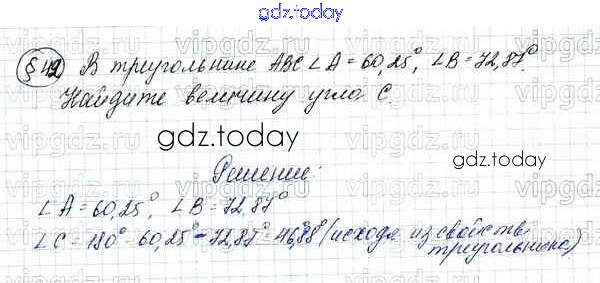 gdz.today
§ 42) В треугольнике ABC ∠A = 60,25°, ∠B = 72,87°.
Найдите величину угла C.
gdz.today
gdz.today
Решение:
∠A = 60,25°, ∠B = 72,87°
∠C = 180° - 60,25° - 72,87° = 46,88° (исходя из свойств
треугольника)